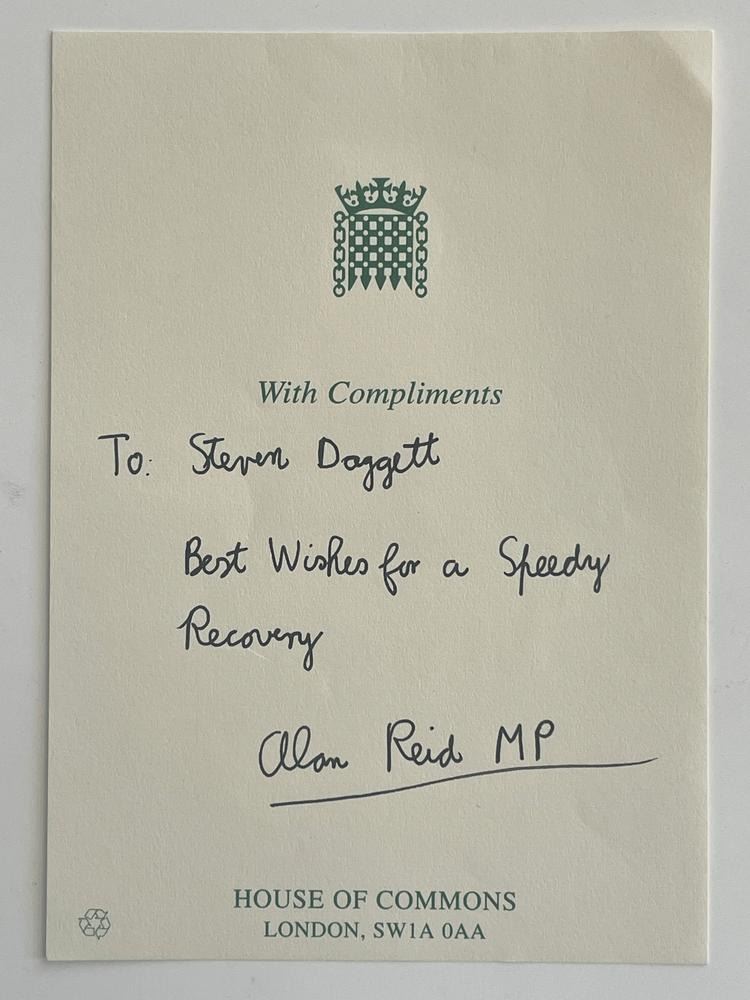 With Compliments
To: Steven Daggett
Best Wishes for a Speedy
Recovery
Alan Reid MP
HOUSE OF COMMONS
LONDON, SW1A 0AA